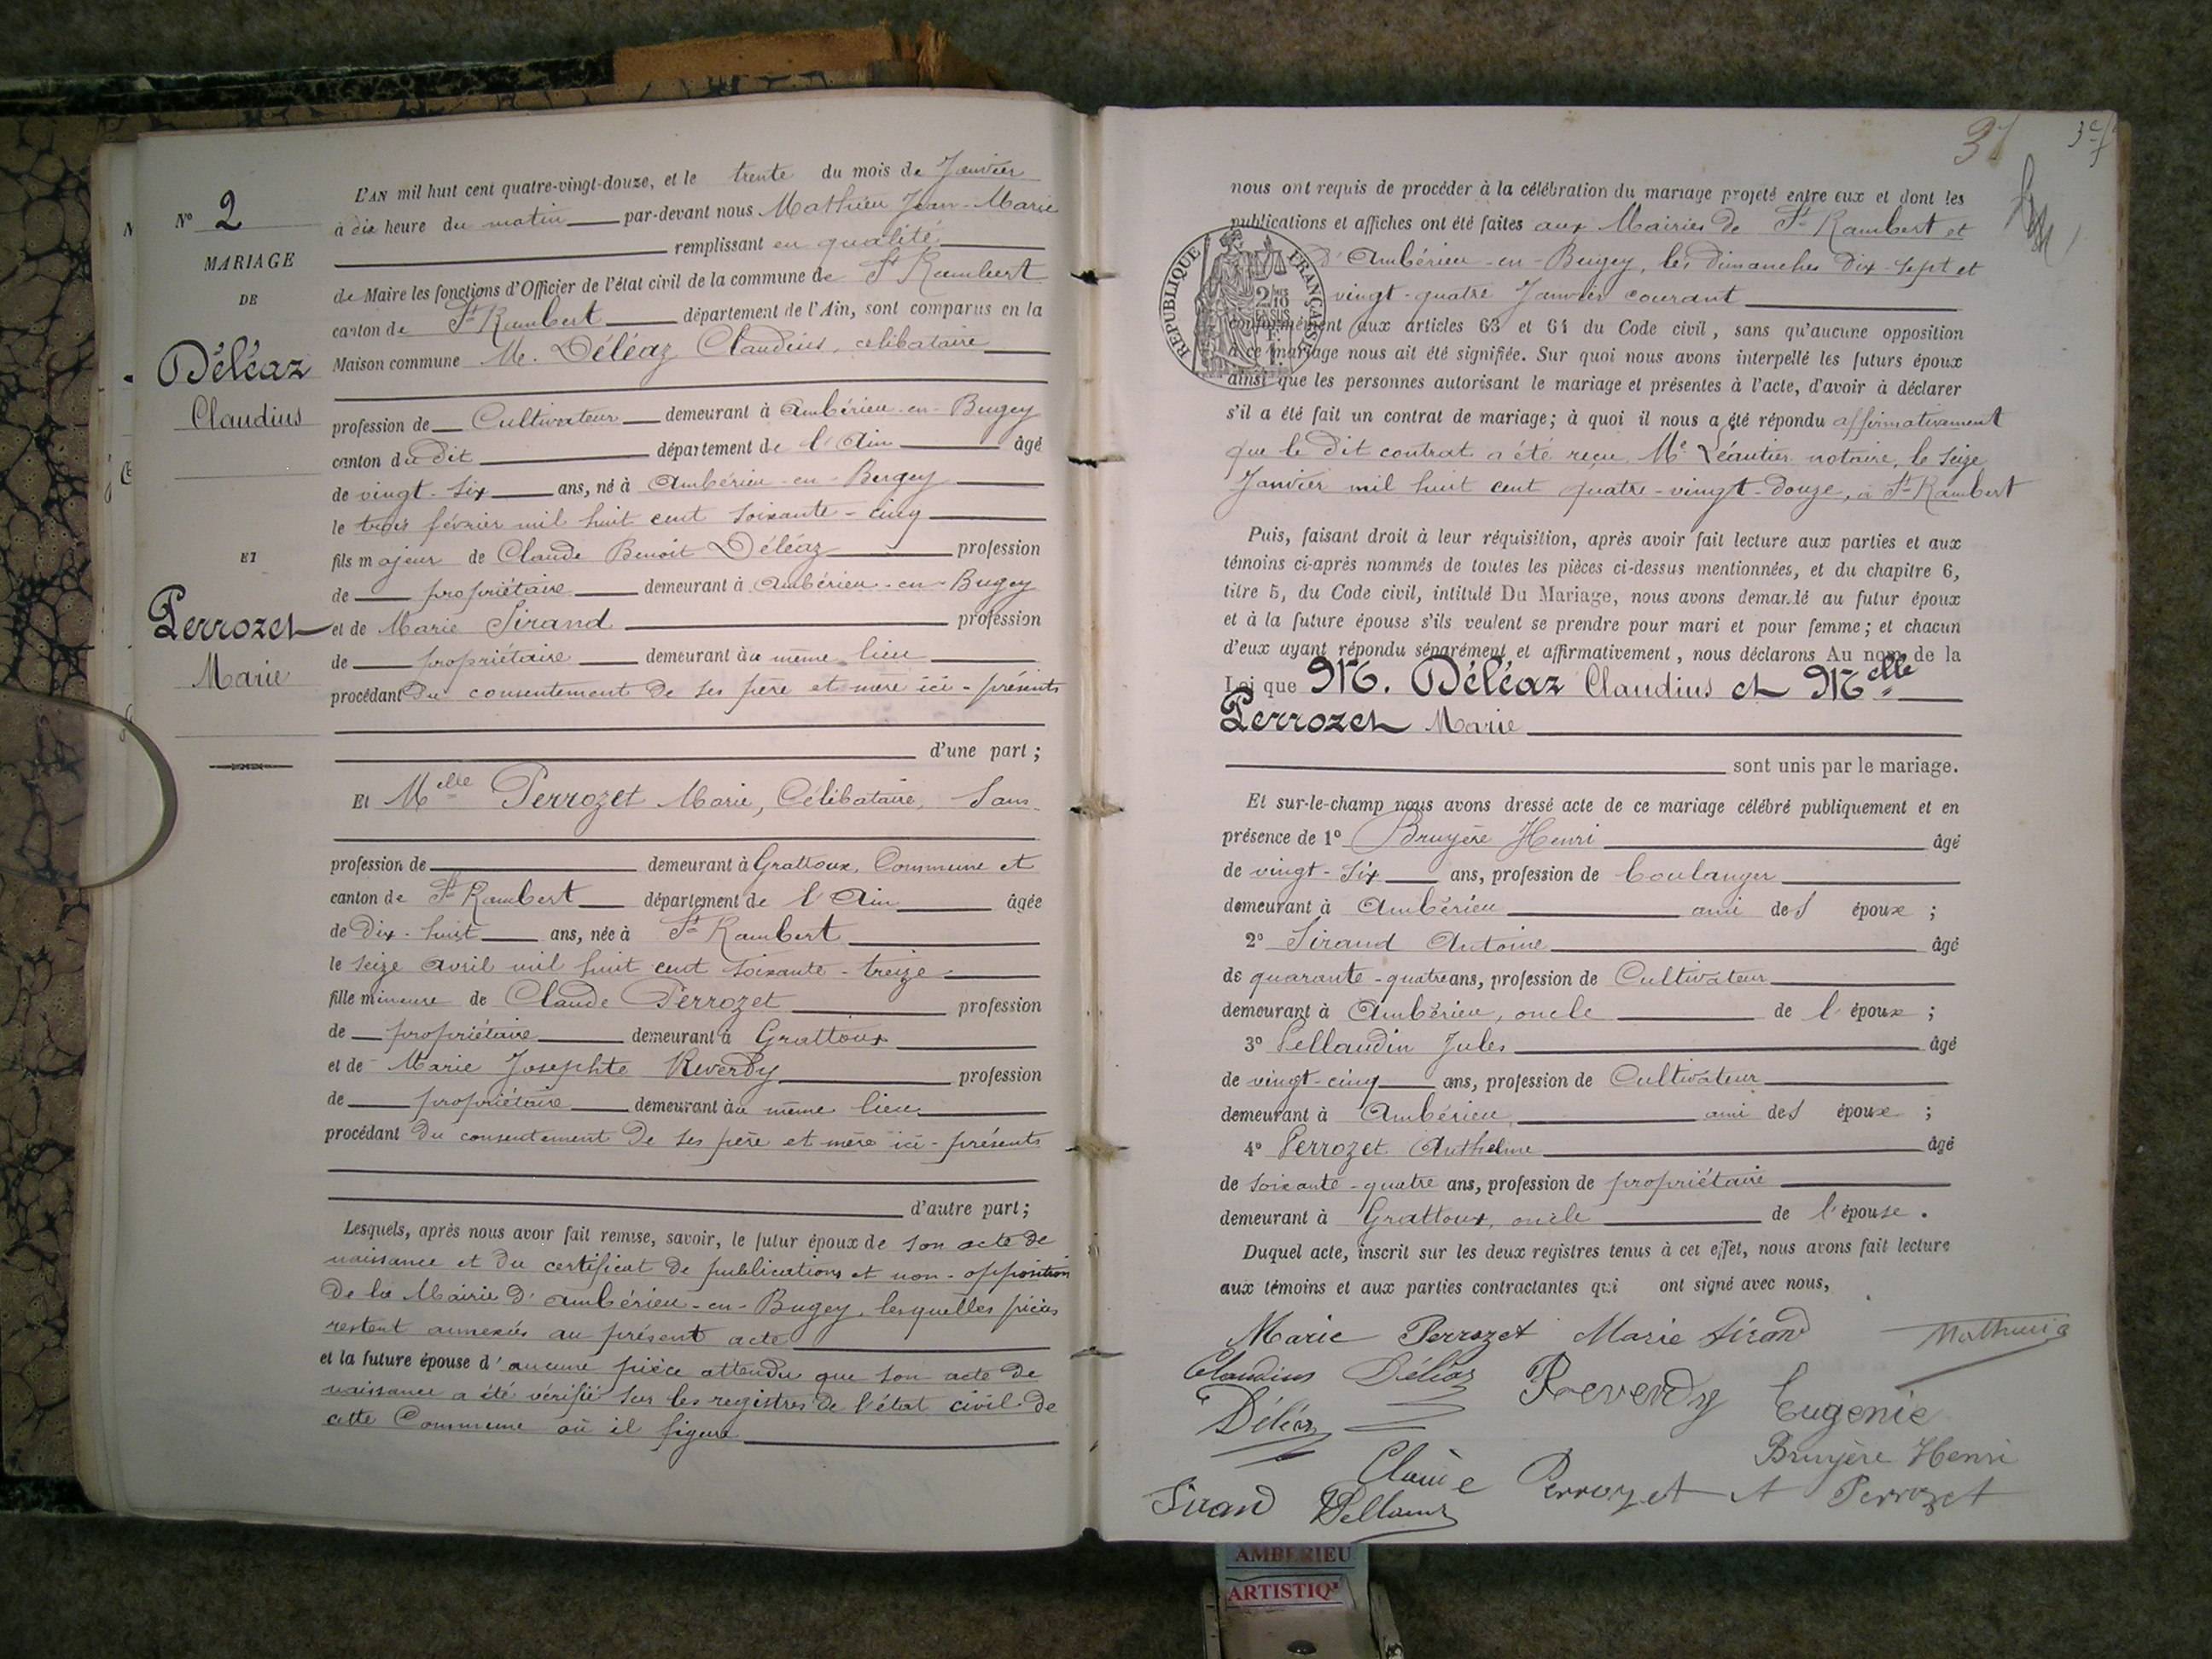 N° 2
MARIAGE
DE
Déléaz
Claudius
ET
Perrozet
Marie
L'AN mil huit cent quatre-vingt-douze, et le trente du mois de Janvier
à dix heure du matin par-devant nous Mathieu Jean-Marie
remplissant en qualité
de Maire les fonctions d'Officier de l'état civil de la commune de St Rambert
canton de St Rambert département de l'Ain, sont comparus en la
Maison commune Mr. Déléaz Claudius, célibataire
profession de Cultivateur demeurant à Ambérieu-en-Bugey
canton du dit département de l'Ain âgé
de vingt-six ans, né à Ambérieu-en-Bugey
le trois février mil huit cent soixante-cinq
fils majeur de Claude Benoit Déléaz profession
de propriétaire demeurant à Ambérieu-en-Bugey
et de Marie Sirand profession
de propriétaire demeurant au même lieu
procédant du consentement de ses père et mère ici-présents
d'une part;
Et Melle Perrozet Marie, Célibataire, Sans
profession de demeurant à Grattoux, Commune et
canton de St Rambert département de l'Ain âgée
de dix-huit ans, née à St Rambert
le seize avril mil huit cent soixante-treize
fille mineure de Claude Perrozet profession
de propriétaire demeurant à Grattoux
et de Marie Josephte Reverdy profession
de propriétaire demeurant au même lieu
procédant du consentement de ses père et mère ici-présents
d'autre part;
Lesquels, après nous avoir fait remise, savoir, le futur époux de son acte de
naissance et du certificat de publications et non-opposition
de la Mairie d'Ambérieu-en-Bugey, lesquelles pièces
restent annexées au présent acte
et la future épouse d'aucune pièce attendu que son acte de
naissance a été vérifié sur les registres de l'état civil de
cette Commune où il figure
37
nous ont requis de procéder à la célébration du mariage projeté entre eux et dont les
publications et affiches ont été faites aux Mairies de St Rambert et
d'Ambérieu-en-Bugey, les dimanches dix-sept et
vingt-quatre Janvier courant
RÉPUBLIQUE FRANÇAISE
conformément aux articles 63 et 64 du Code civil, sans qu'aucune opposition
à ce mariage nous ait été signifiée. Sur quoi nous avons interpellé les futurs époux
ainsi que les personnes autorisant le mariage et présentes à l'acte, d'avoir à déclarer
s'il a été fait un contrat de mariage; à quoi il nous a été répondu affirmativement
que le dit contrat a été reçu Me Léautier notaire, le seize
Janvier mil huit cent quatre-vingt-douze, à St-Rambert
Puis, faisant droit à leur réquisition, après avoir fait lecture aux parties et aux
témoins ci-après nommés de toutes les pièces ci-dessus mentionnées, et du chapitre 6,
titre 5, du Code civil, intitulé Du Mariage, nous avons demandé au futur époux
et à la future épouse s'ils veulent se prendre pour mari et pour femme; et chacun
d'eux ayant répondu séparément et affirmativement, nous déclarons Au nom de la
Loi que M. Déléaz Claudius et Melle
Perrozet Marie
sont unis par le mariage.
Et sur-le-champ nous avons dressé acte de ce mariage célébré publiquement et en
présence de 1° Bruyère Henri âgé
de vingt-six ans, profession de boulanger
demeurant à Ambérieu ami des époux ;
2° Sirand Antoine âgé
de quarante-quatre ans, profession de Cultivateur
demeurant à Ambérieu, oncle de l'époux ;
3° Pellaudin Jules âgé
de vingt-cinq ans, profession de Cultivateur
demeurant à Ambérieu ami des époux ;
4° Perrozet Anthelme âgé
de soixante-quatre ans, profession de propriétaire
demeurant à Grattoux, oncle de l'épouse.
Duquel acte, inscrit sur les deux registres tenus à cet effet, nous avons fait lecture
aux témoins et aux parties contractantes qui ont signé avec nous,
Marie Perrozet Marie Sirand
Claudius Déléaz Reverdy Eugenie
Déléaz
Bruyère Henri
Claude Perrozet A Perrozet
Sirand
AMBERIEU
ARTISTIQ